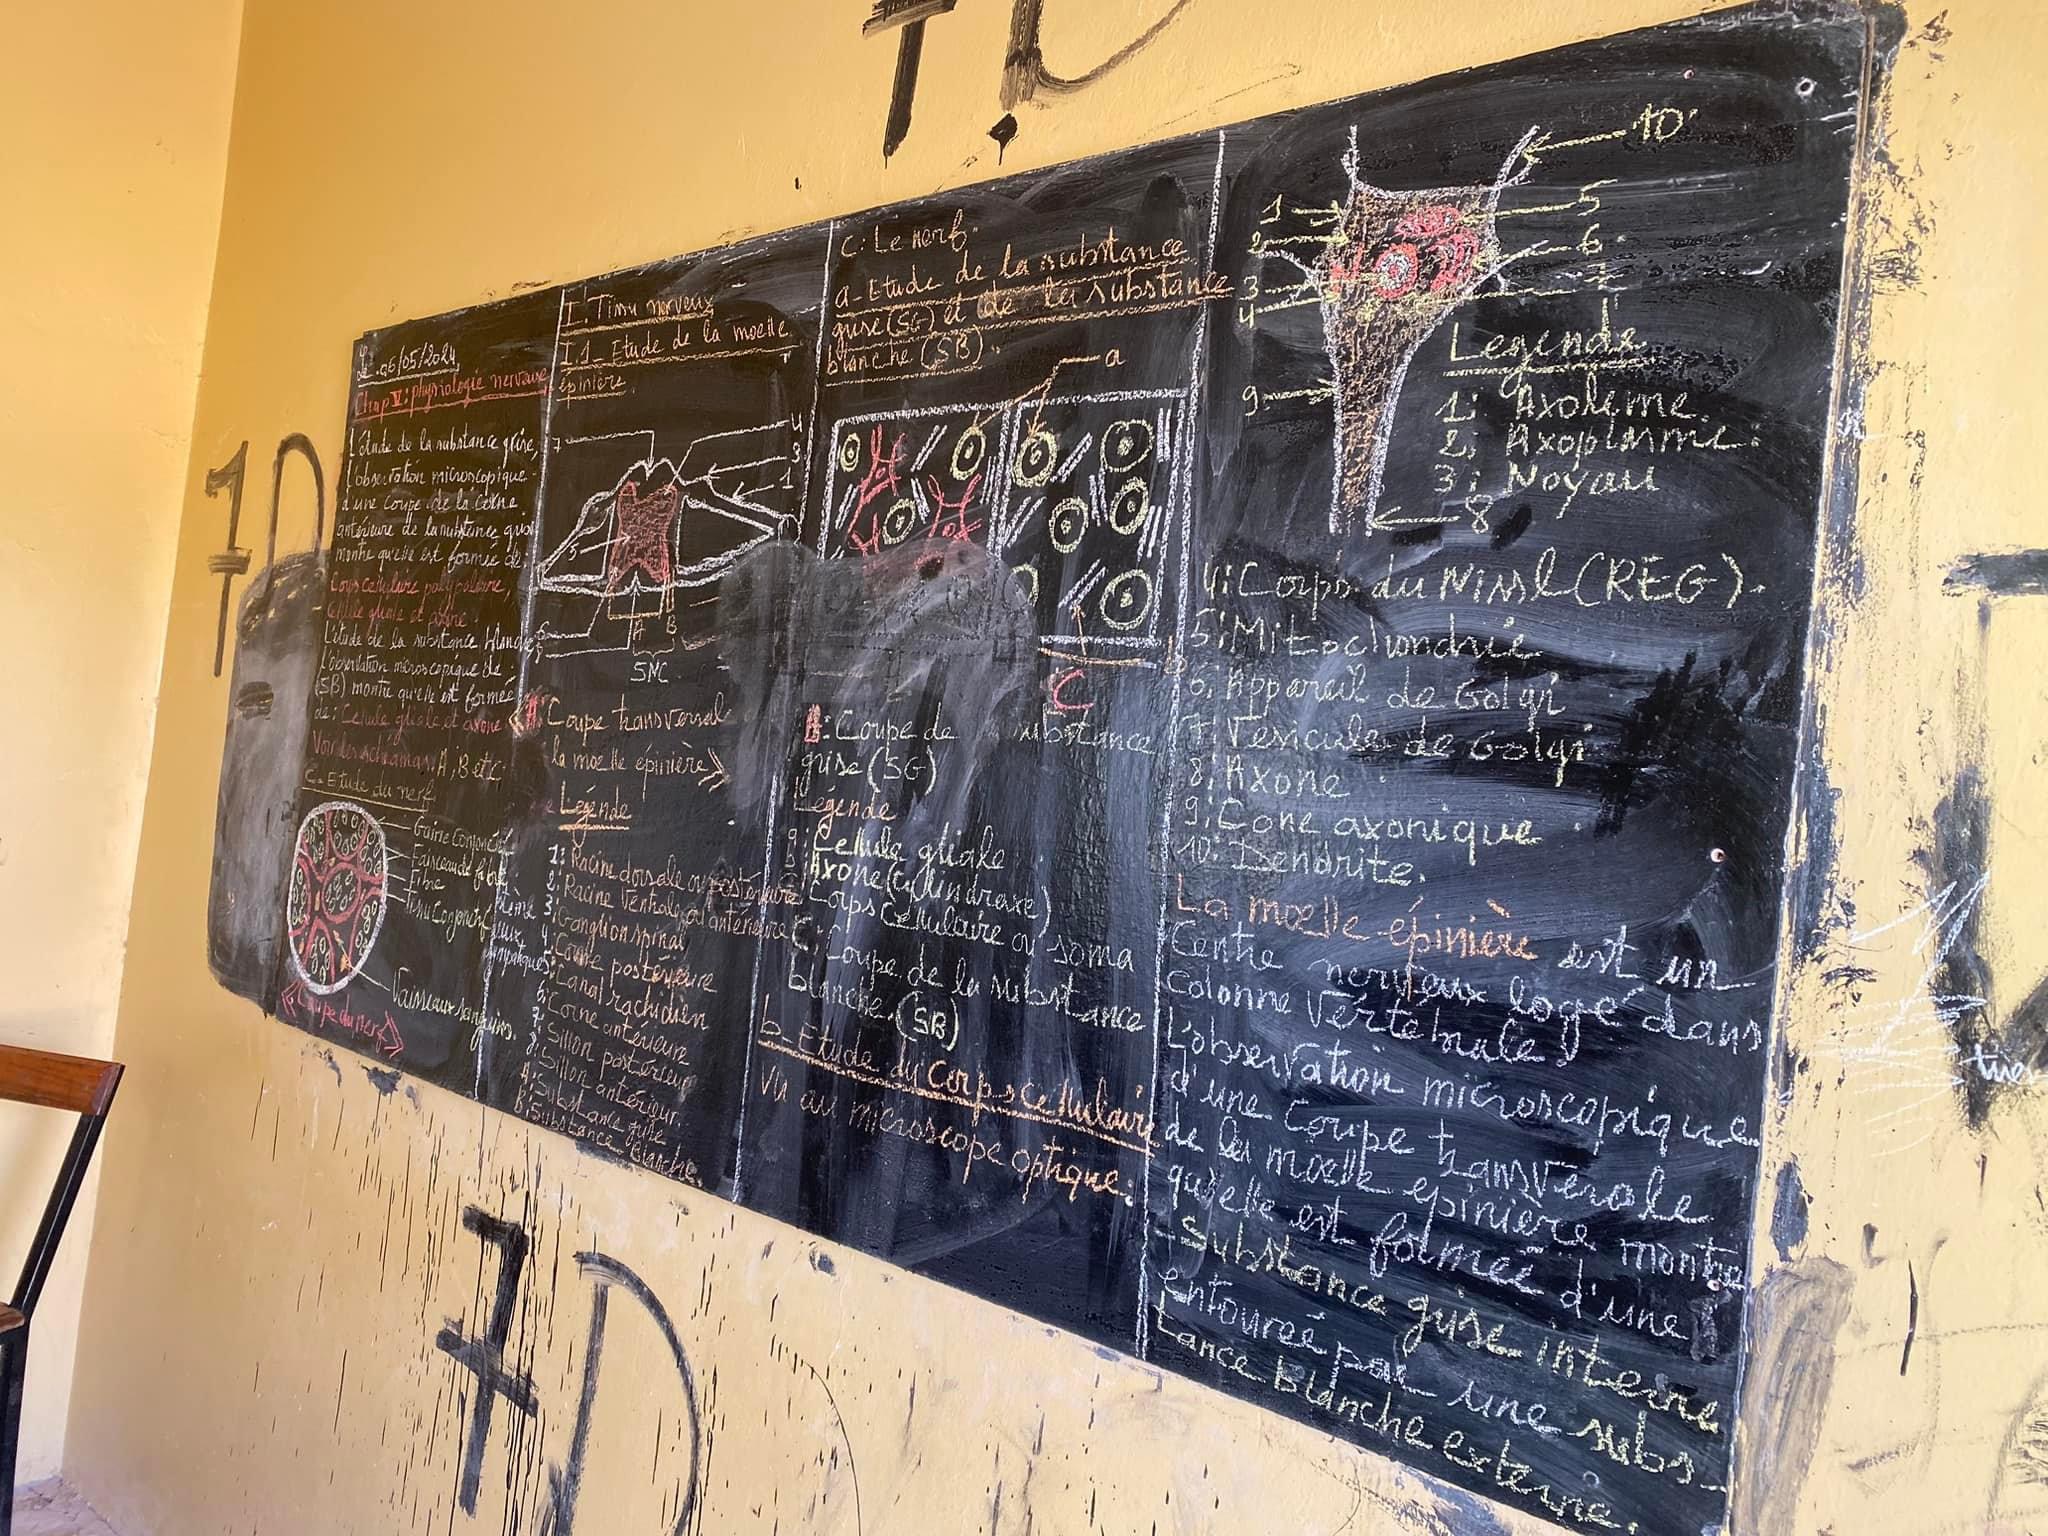 Le 06/05/2024
Chap V: physiologie nerveuse
L'étude de la substance grise,
l'observation microscopique
d'une coupe de la corne
antérieure de la substance grise
montre qu'elle est formée de:
Corps cellulaire polypolaire,
cellule gliale et axone.
L'étude de la substance blanche
l'observation microscopique de
(SB) montre qu'elle est formée
de: Cellule gliale et axone
Voir les schémas A, B et C
C- Etude du nerf.
Gaine Conjonctif
Faisceau de fibre
Fibre
Tissu Conjonctif
Vaisseaux sanguins.
«Coupe du nerf»
I. Tissu nerveux
I.1- Etude de la moelle
épinière
7
4
3
1
5
6
A B
SNC
Coupe transversal
la moelle épinière»
Légende
1: Racine dorsale ou postérieure
2: Racine Ventrale ou antérieure
3: Ganglion spinal
4: Corne postérieure
5: Canal rachidien
6: Corne antérieure
7: Sillon postérieur
8: Sillon antérieur.
A: Substance grise
B: Substance Blanche.
C: Le nerf.
a- Etude de la substance
grise (SG) et de la substance
blanche (SB).
a
C
B: Coupe de substance
grise (SG)
Légende
a: Cellule gliale
b: Axone (Cylindraxe)
Corps Cellulaire ou soma
C: Coupe de la substance
blanche. (SB)
b- Etude du corps cellulaire
vu au microscope optique:
10
1
5
2
6
3
7
4
9
8
Légende
1: Axolème
2: Axoplasme
3: Noyau
4: Corps du Nissl (REG).
5: Mitochondrie
6: Appareil de Golgi
7: Vesicule de Golgi
8: Axone
9: Cone axonique
10: Dendrite.
La moelle épinière est un
Centre nerveux logé dans
Colonne Vértebrale!
L'observation microscopique
d'une coupe transversale
de la moelle épinière montre
qu'elle est formée d'une
- Substance grise interne
entourée par une subs-
tance Blanche externe.
1D